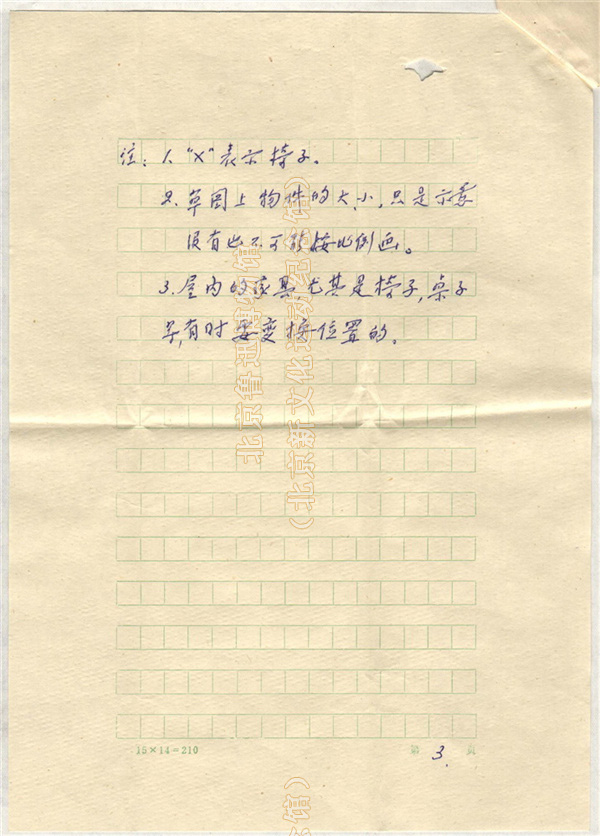 注：1. “×”表示椅子。
2. 草图上物件的大、小，只是示意
没有也不可能按比例画。
3. 屋内的家具，尤其是椅子，桌子
等，有时要变换位置的。
15×14=210
第 3. 页
北京鲁迅博物馆
（北京新文化运动纪念馆）
馆）